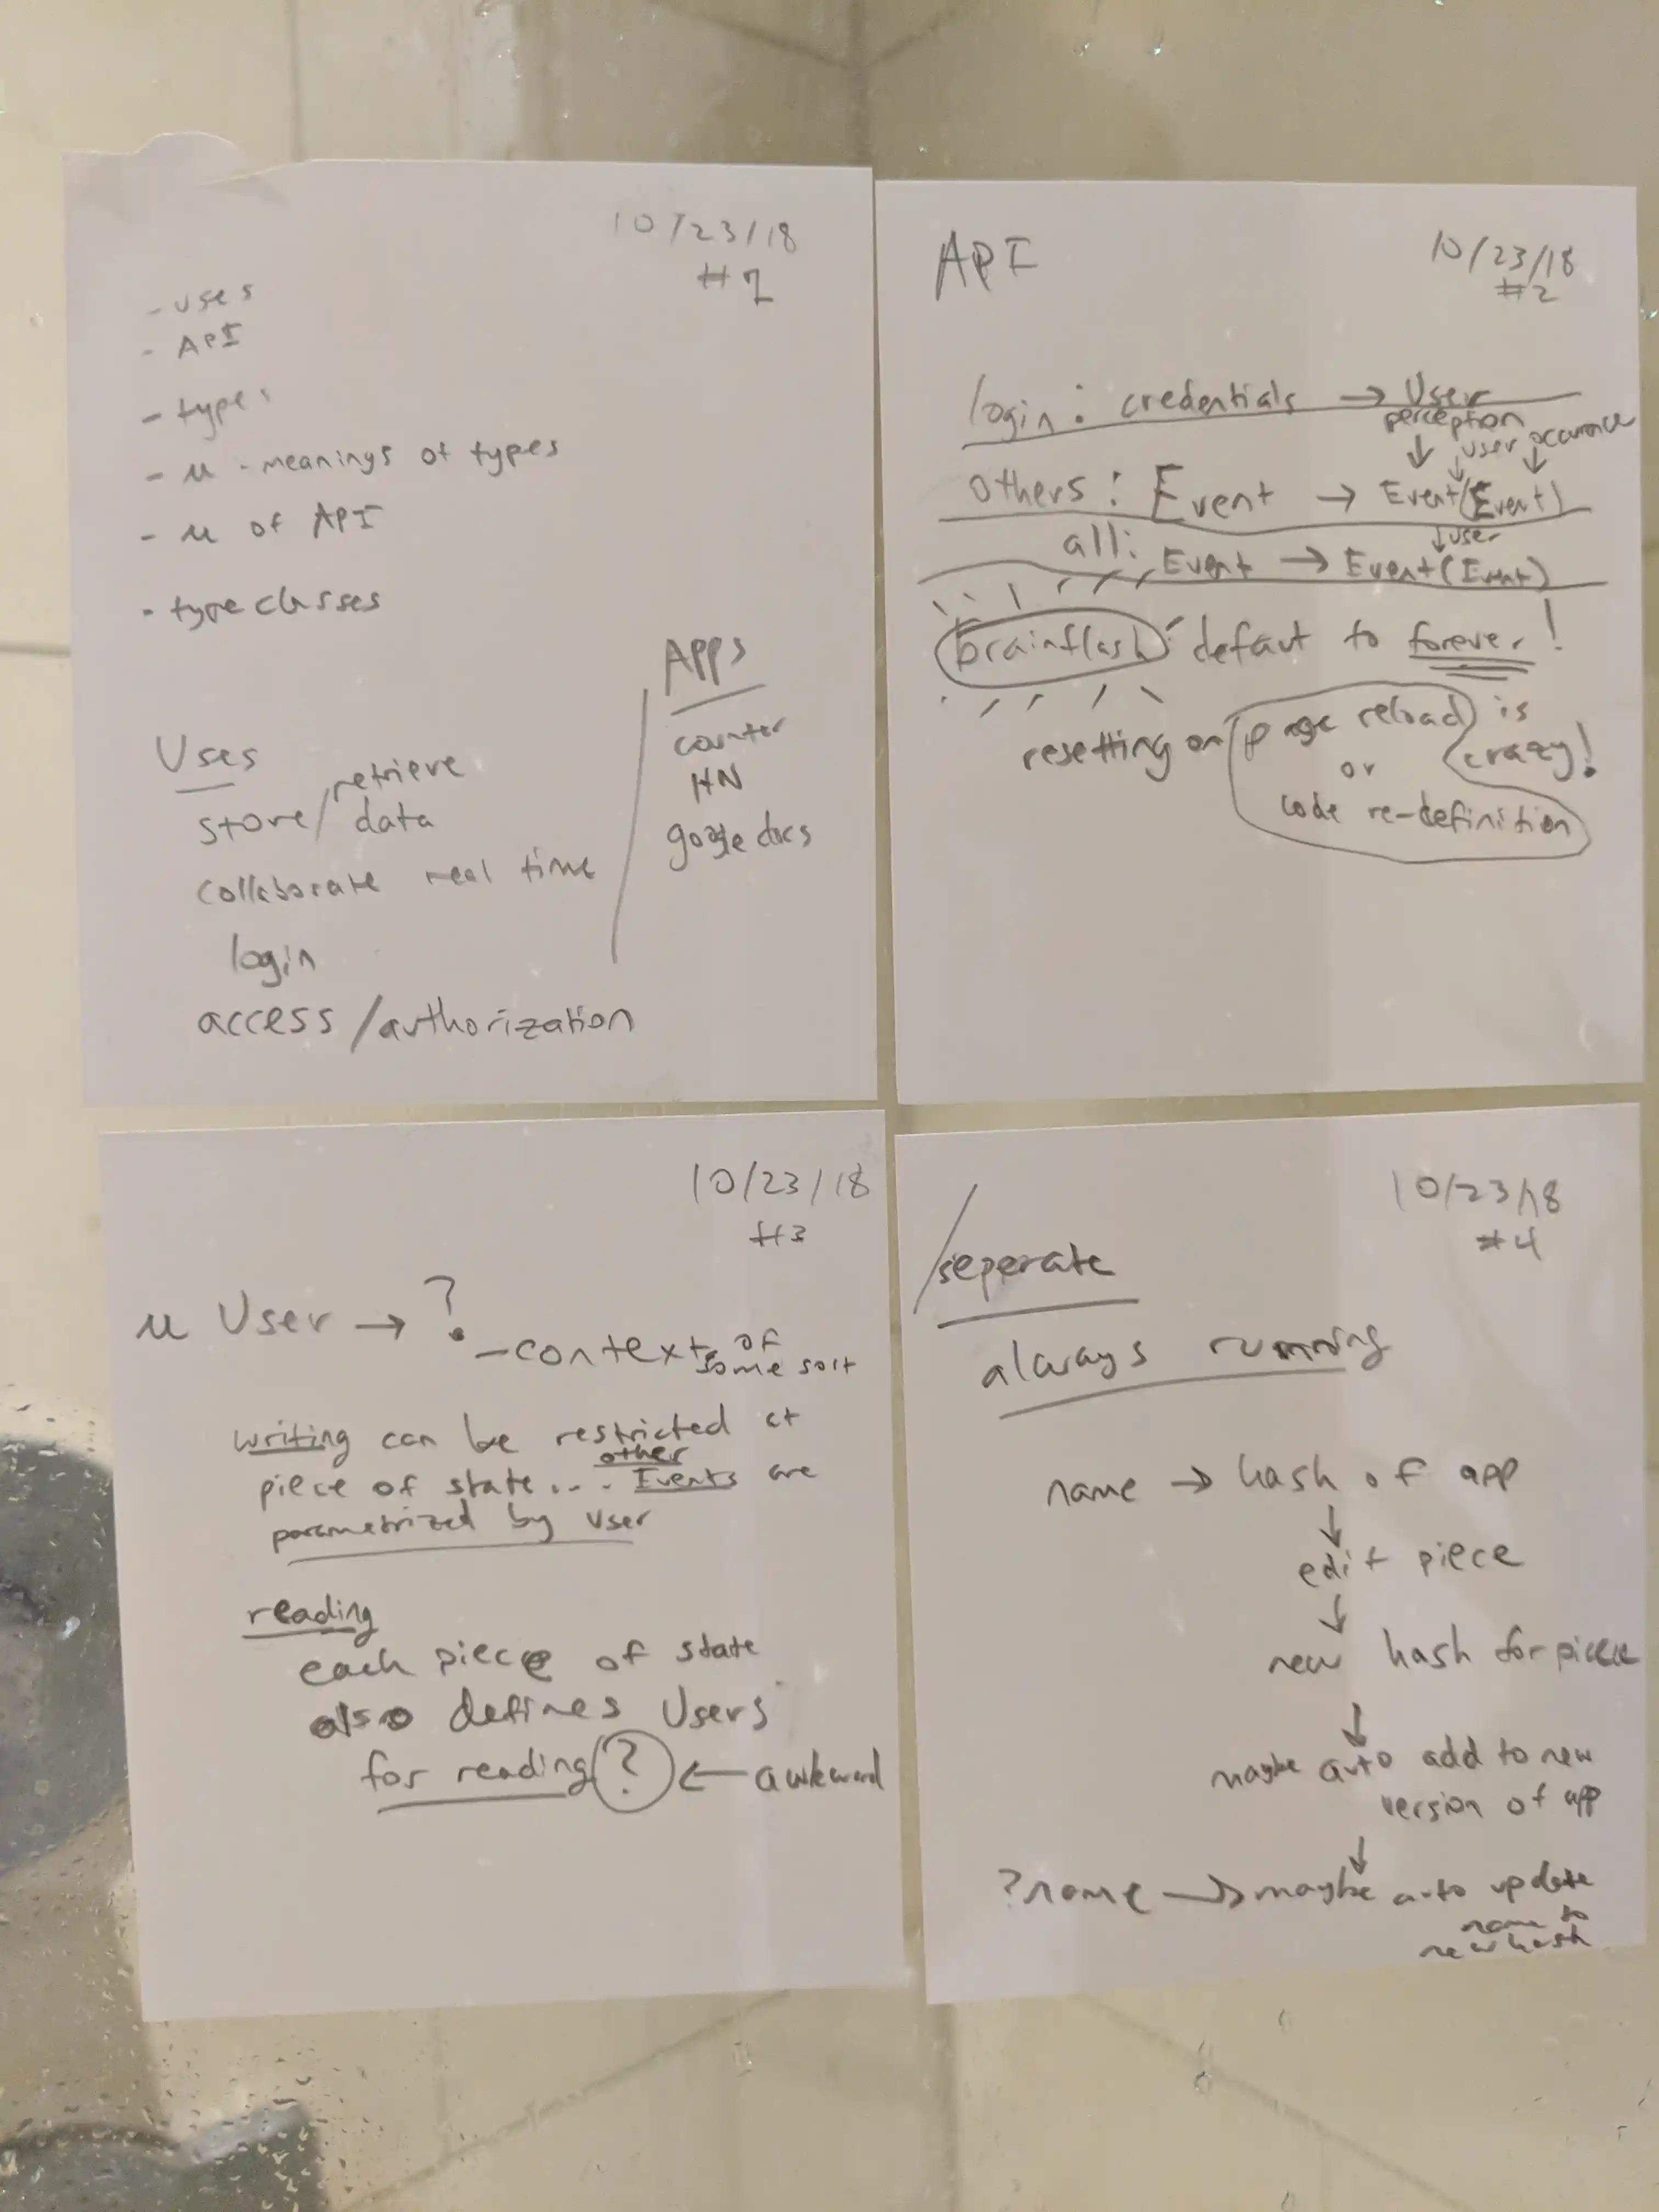 10/23/18
#1
- uses
- API
- types
- μ - meanings of types
- μ of API
- type classes
Uses
store/retrieve data
collaborate real time
login
access/authorization
Apps
counter
HN
google docs
API
10/23/18
#2
login: credentials → User
perception
user occurence
others: Event → Event(Event)
user
all: Event → Event(Event)
brainflash: defaut to forever!
resetting on page reload is
or crazy!
code re-definition
10/23/18
#3
μ User → ?
- context of
some sort
writing can be restricted at
other
piece of state... Events are
parametrized by user
reading
each piece of state
also defines Users
for reading ? ← awkward
10/23/18
#4
seperate
always running
name → hash of app
↓
edit piece
↓
new hash for piece
↓
maybe auto add to new
version of app
↓
?name → maybe auto update
name to
new hash